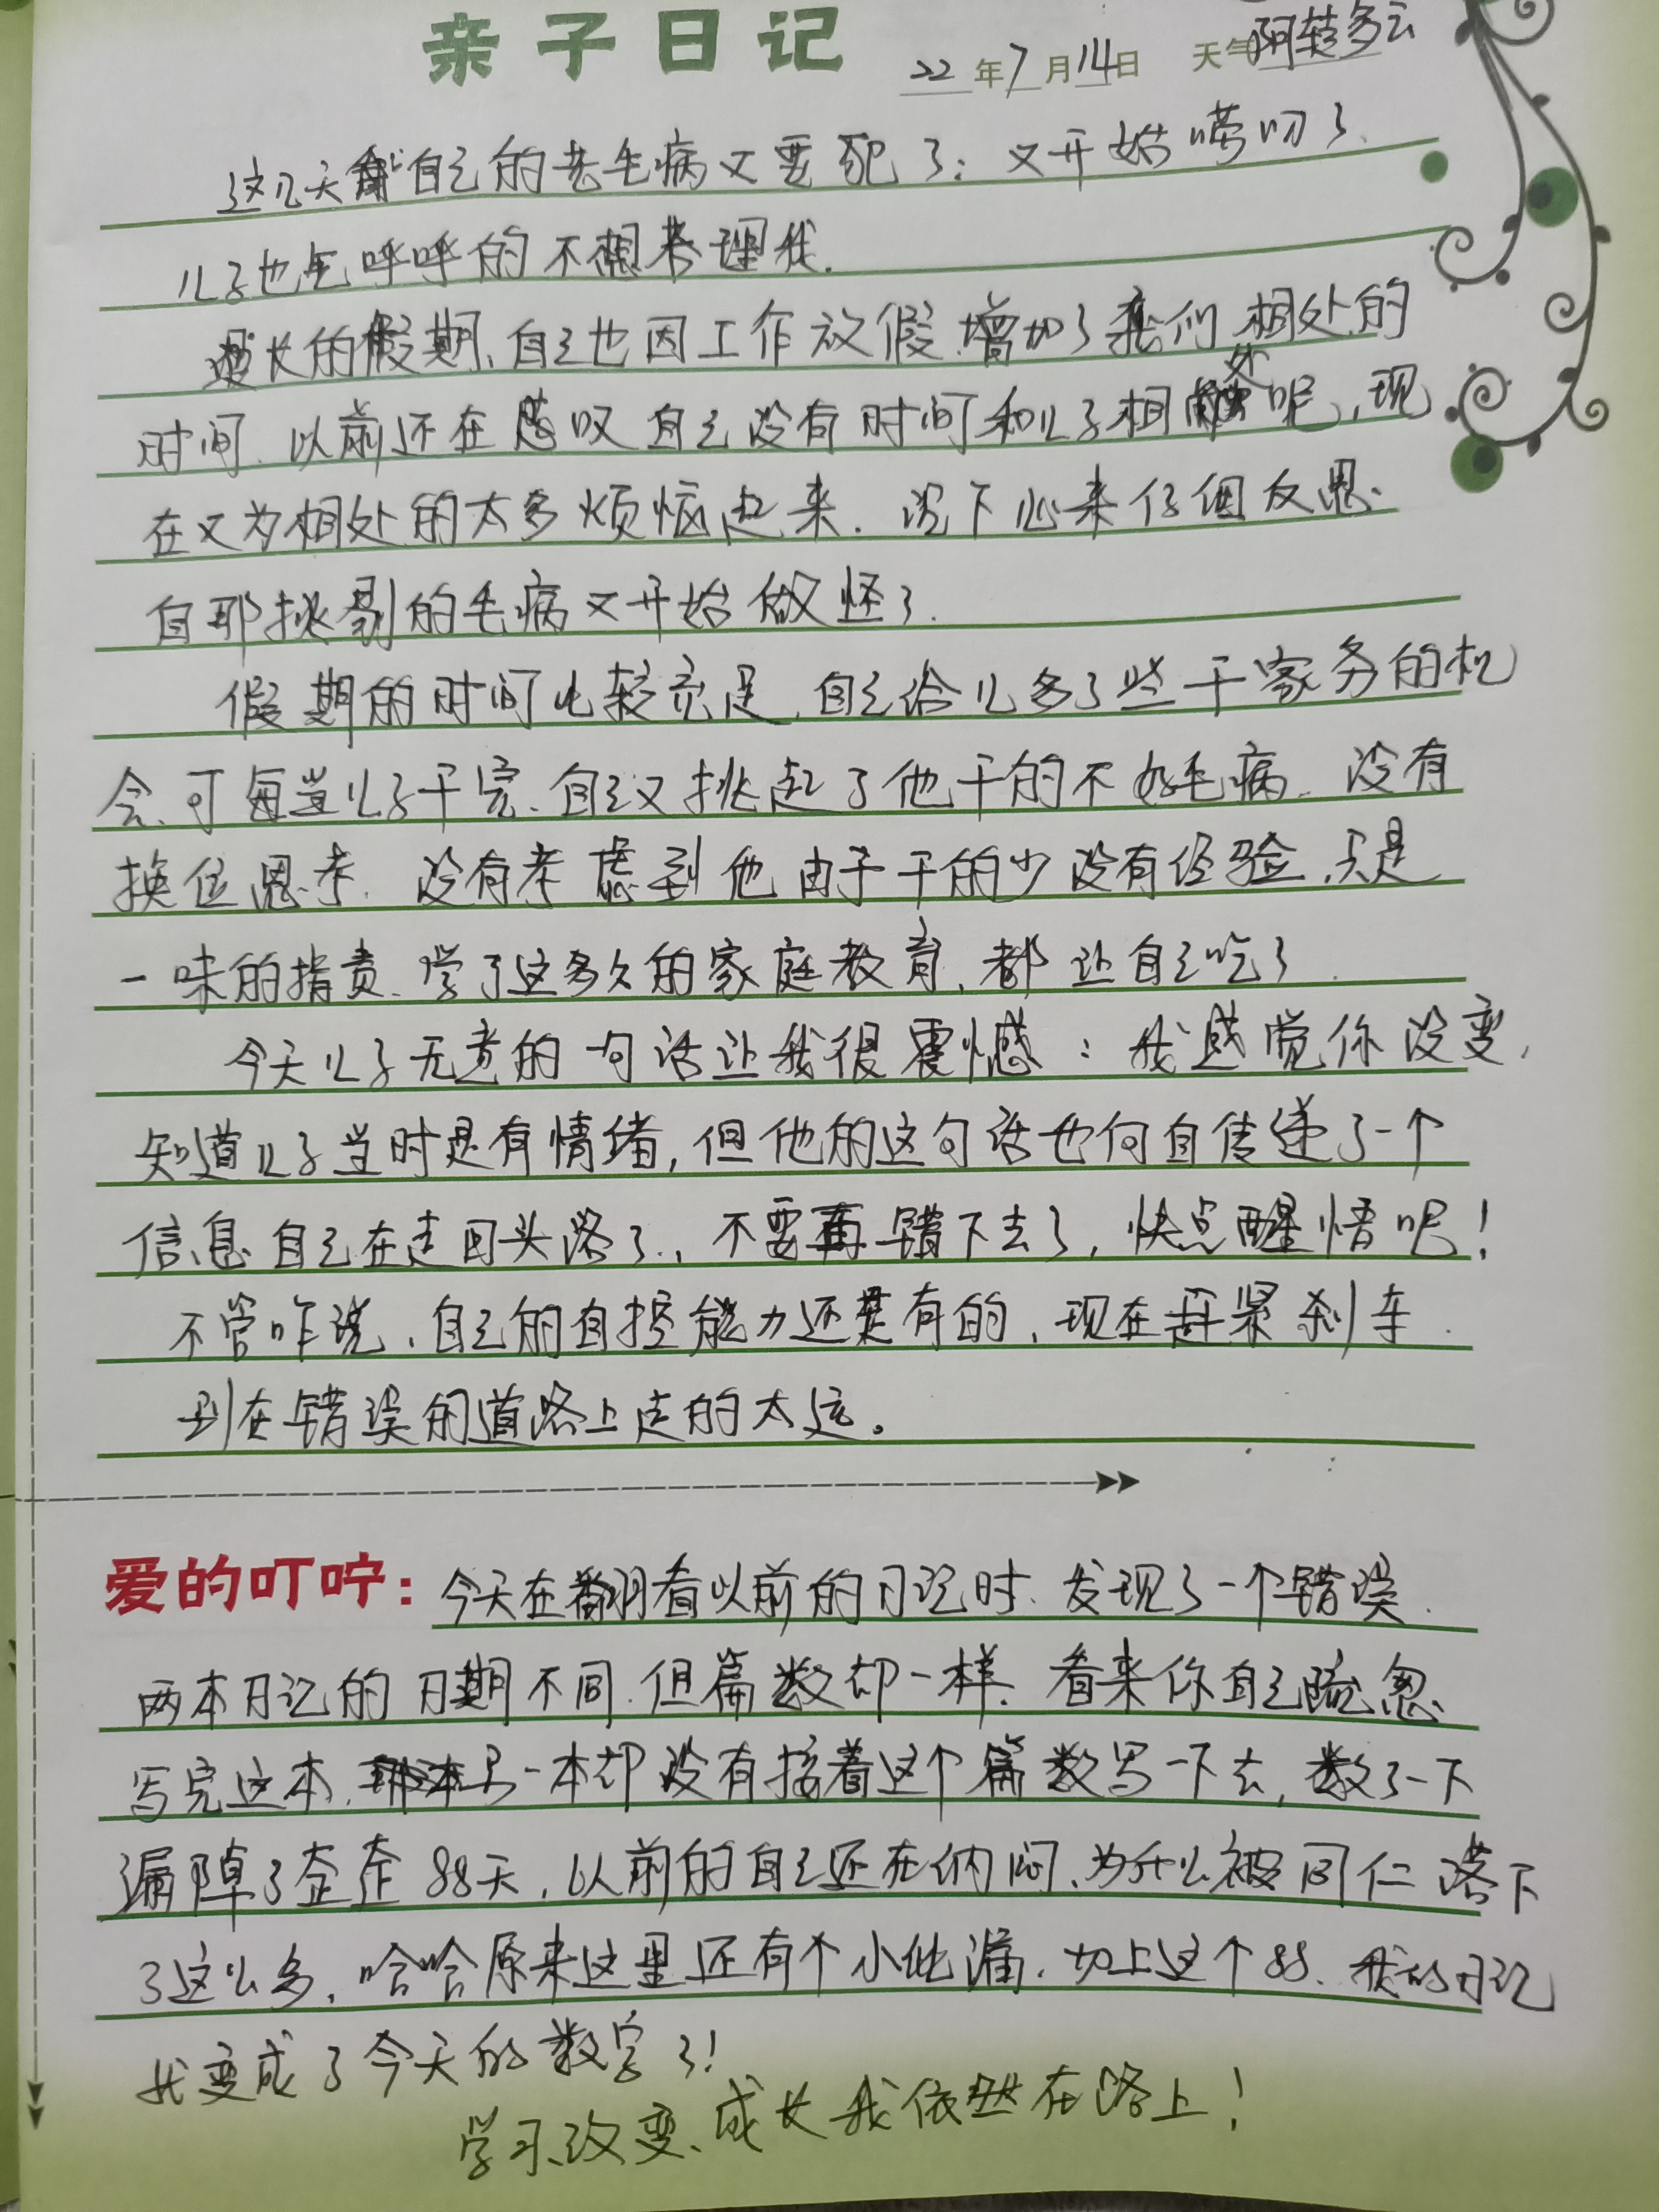 亲子日记 22年7月14日 天气阴转多云
这几天自己的老毛病又要犯了：又开始唠叨了.
儿子也气呼呼的不想答理我.
漫长的假期、自己也因工作放假.增加了我们相处的
时间.以前还在感叹自己没有时间和儿子相处呢,现
在又为相处的太多烦恼起来.沉下心来仔细反思.
自那挑剔的毛病又开始做怪了.
假期的时间比较充足,自己给儿多了些干家务的机
会、可每当儿子干完、自己又挑起了他干的不好毛病.没有
换位思考.没有考虑到他由于干的少没有经验,只是
一味的指责、学了这多久的家庭教育,都让自己吃了.
今天儿子无意的一句话让我很震憾：我感觉你没变,
知道儿子当时是有情绪,但他的这句话也向自传递了一个
信息自己在走回头路了.,不要再错下去了,快点醒悟吧!
不管咋说,自己的自控能力还是有的,现在赶紧刹车.
别在错误的道路上走的太远。
爱的叮咛：今天在翻看以前的日记时、发现了一个错误.
两本日记的日期不同.但篇数却一样.看来你自己疏忽.
写完这本,另一本却没有接着这个篇数写一下去,数了一下
漏掉了整整88天,以前的自己还在纳闷、为什么被同仁落下
了这么多,哈哈原来这里还有个小纰漏.加上这个88、我的日记
变成了今天的数字了!
学习、改变、成长我依然在路上!